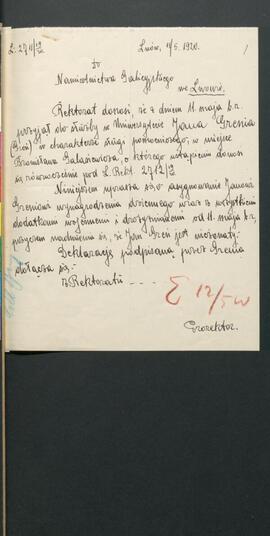 Lwów, 11/5. 1920.
do
Namiestnictwa Galicyjskiego
we Lwowie.
Rektorat donosi, że z dniem 11 maja b.r.
przyjął do służby w Uniwersytecie Jana Grenia
w charakterze sługi pomocniczego, w miejsce
Bronisława Galasiewicza, o którego ustąpieniu donosi
się równocześnie pod L. Rekt. 2712/20
Niniejszem uprasza się o asygnowanie Janowi
Greniowi wynagrodzenia dziennego wraz z wszystkimi
dodatkami wojennymi i drożyźnianymi od 11. maja br,
przyczem nadmienia się, że Jan Greń jest nieżonaty.
Deklarację podpisaną przez Grenia
dołącza się.
Z Rektoratu - - -
12/5 20
Prorektor.